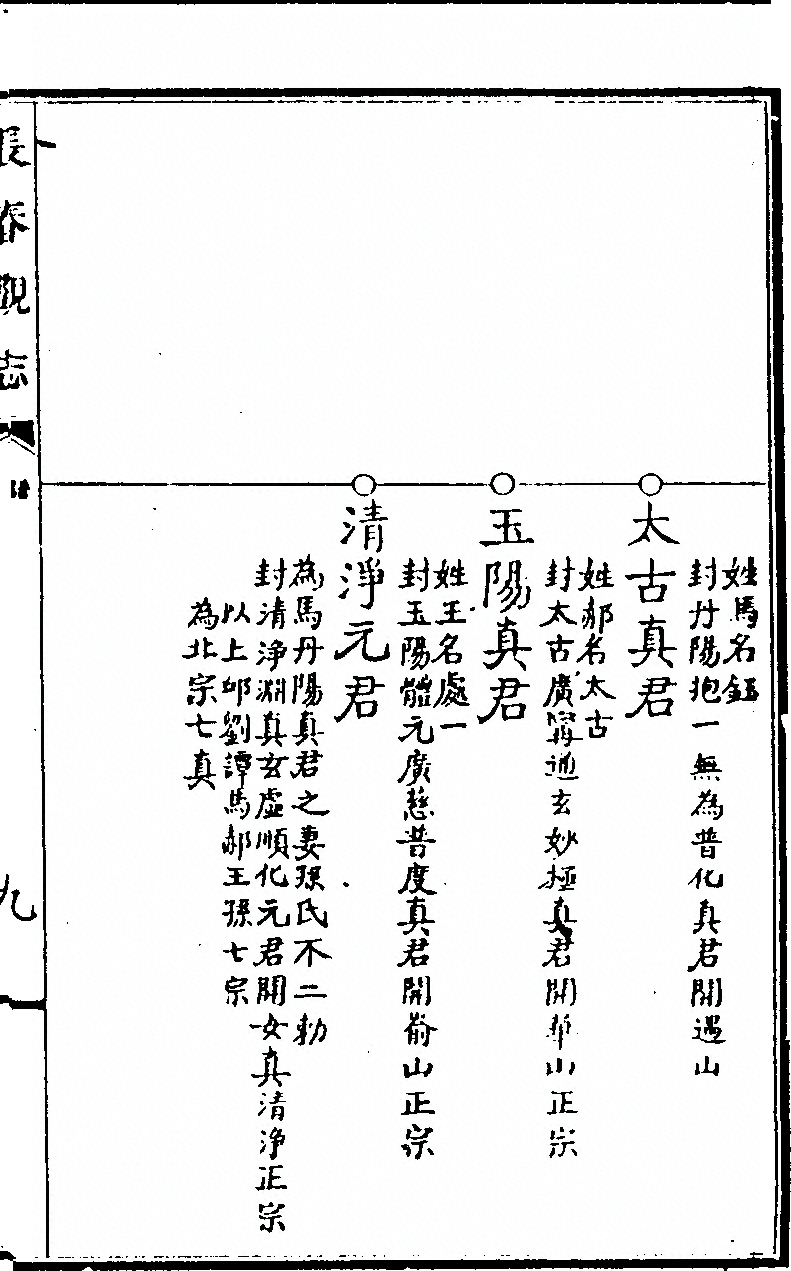 姓馬名鈺
封丹陽抱一無為普化真君開遇山
太古真君
姓郝名太古
封太古廣寧通玄妙極真君開華山正宗
玉陽真君
姓王名處一
封玉陽體元廣慈普度真君開嵛山正宗
清淨元君
為馬丹陽真君之妻孫氏不二勅
封清淨淵真玄虛順化元君開女真清淨正宗
以上邱劉譚馬郝王孫七宗
為北宗七真
長春觀志
九